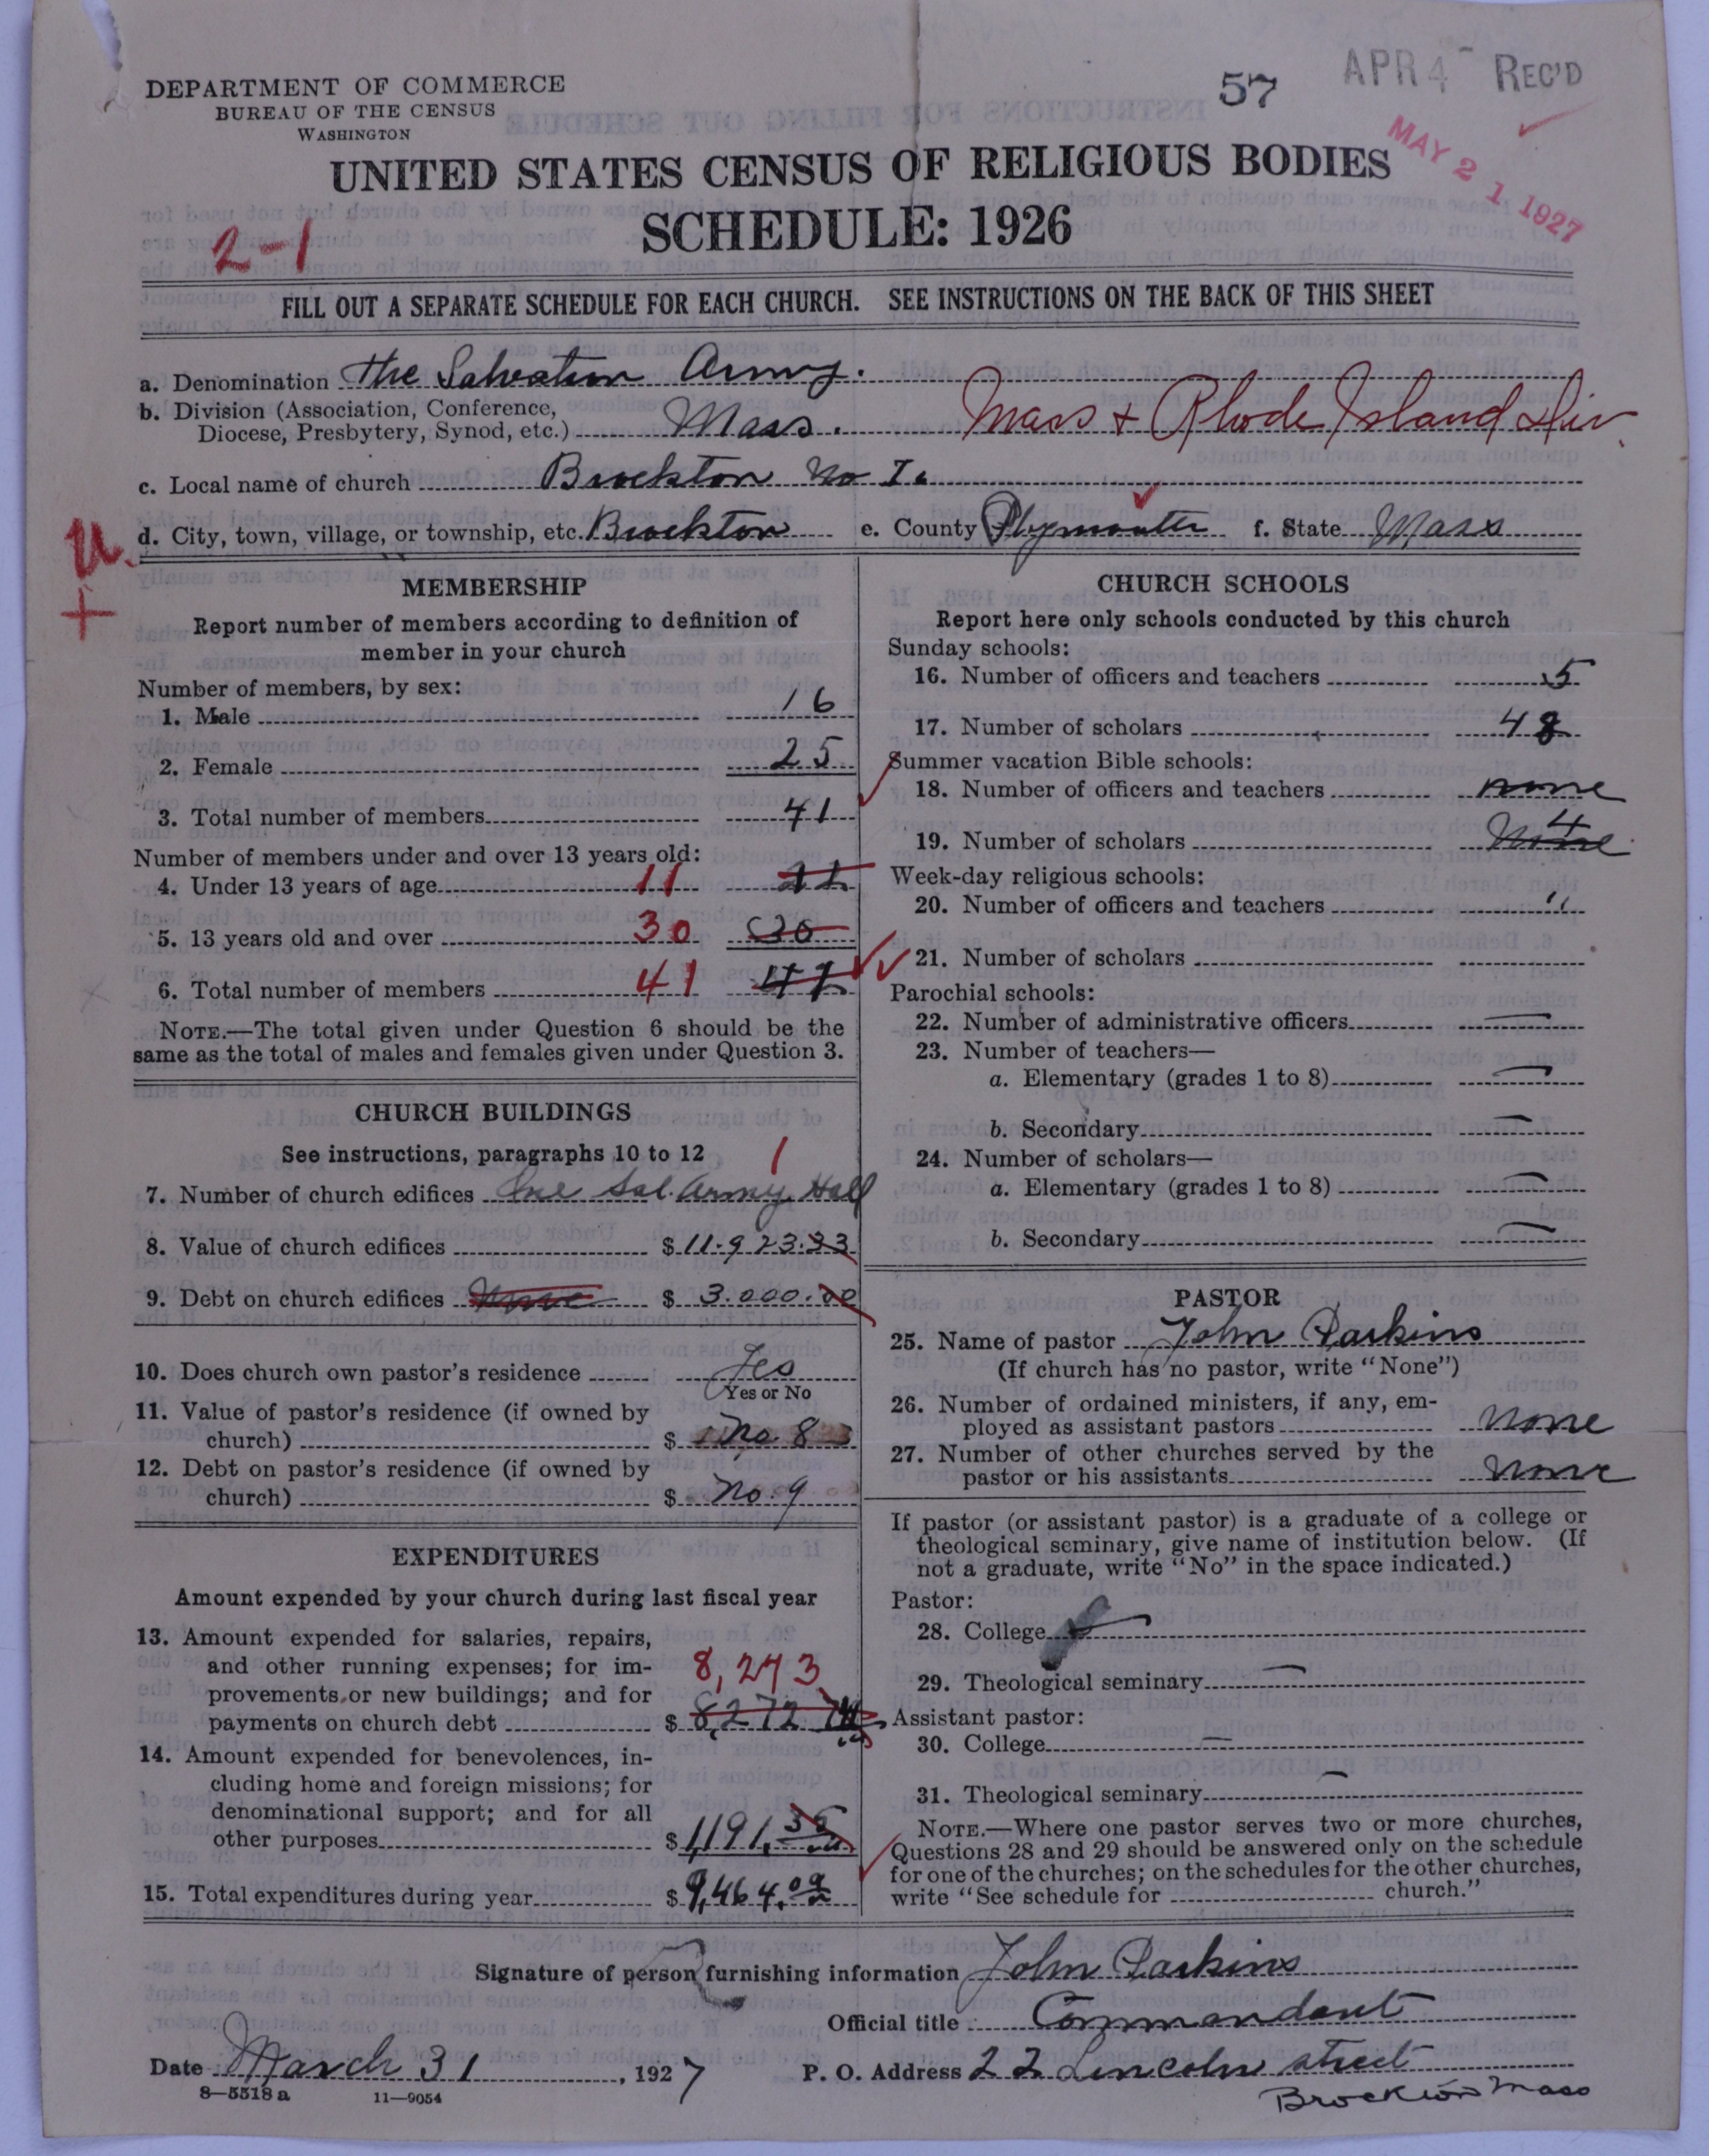 DEPARTMENT OF COMMERCE
BUREAU OF THE CENSUS
WASHINGTON
57
APR 4 REC'D
MAY 21 1927
UNITED STATES CENSUS OF RELIGIOUS BODIES
SCHEDULE: 1926
2-1
FILL OUT A SEPARATE SCHEDULE FOR EACH CHURCH. SEE INSTRUCTIONS ON THE BACK OF THIS SHEET
a. Denomination The Salvation Army.
b. Division (Association, Conference,
Diocese, Presbytery, Synod, etc.) Mass. Mass & Rhode Island Div.
c. Local name of church Brockton No I.
d. City, town, village, or township, etc. Brockton e. County Plymouth f. State Mass
U.
+
MEMBERSHIP
Report number of members according to definition of
member in your church
Number of members, by sex:
1. Male 16
2. Female 25
3. Total number of members 41
Number of members under and over 13 years old:
4. Under 13 years of age 11
5. 13 years old and over 30 30
6. Total number of members 41
NOTE.—The total given under Question 6 should be the
same as the total of males and females given under Question 3.
CHURCH BUILDINGS
See instructions, paragraphs 10 to 12
1
7. Number of church edifices One Sal. Army Hall
8. Value of church edifices $11.923.33
9. Debt on church edifices None $ 3.000.00
10. Does church own pastor's residence Yes
Yes or No
11. Value of pastor's residence (if owned by
church) $ No. 8
12. Debt on pastor's residence (if owned by
church) $ No. 9
EXPENDITURES
Amount expended by your church during last fiscal year
13. Amount expended for salaries, repairs,
and other running expenses; for im-
provements or new buildings; and for
8,273
payments on church debt $ 8,272
14. Amount expended for benevolences, in-
cluding home and foreign missions; for
denominational support; and for all
other purposes $1,191.35
15. Total expenditures during year $9,464.09
CHURCH SCHOOLS
Report here only schools conducted by this church
Sunday schools:
16. Number of officers and teachers 5
17. Number of scholars 48
Summer vacation Bible schools:
18. Number of officers and teachers none
19. Number of scholars None
Week-day religious schools:
20. Number of officers and teachers "
21. Number of scholars
Parochial schools:
22. Number of administrative officers —
23. Number of teachers—
a. Elementary (grades 1 to 8) —
b. Secondary —
24. Number of scholars—
a. Elementary (grades 1 to 8) —
b. Secondary —
PASTOR
25. Name of pastor John Parkins
(If church has no pastor, write "None")
26. Number of ordained ministers, if any, em-
ployed as assistant pastors None
27. Number of other churches served by the
pastor or his assistants None
If pastor (or assistant pastor) is a graduate of a college or
theological seminary, give name of institution below. (If
not a graduate, write "No" in the space indicated.)
Pastor:
28. College —
29. Theological seminary —
Assistant pastor:
30. College —
31. Theological seminary —
NOTE.—Where one pastor serves two or more churches,
Questions 28 and 29 should be answered only on the schedule
for one of the churches; on the schedules for the other churches,
write "See schedule for church."
Signature of person furnishing information John Parkins
Official title Commandant
Date March 31, 1927 P. O. Address 22 Lincoln street
Brockton Mass
8—5518 a 11—9054